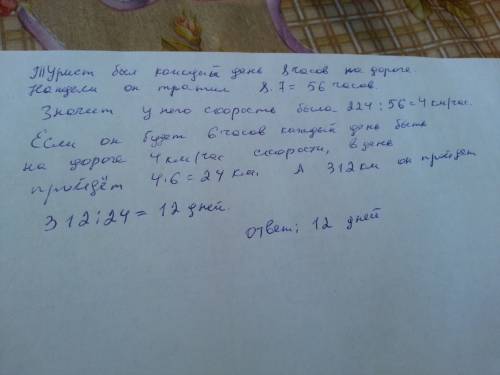 Турист был каждый день 8 часов на дороге.
Недели он тратил 8.7=56 часов.
Значит у него скорость была 224:56=4 км/час.
Если он будет 6 часов каждый день быть
на дороге 4 км/час скорости, в день
пройдёт 4.6=24 км. А 312 км он пройдет
312:24= 12 дней.
ответ: 12 дней